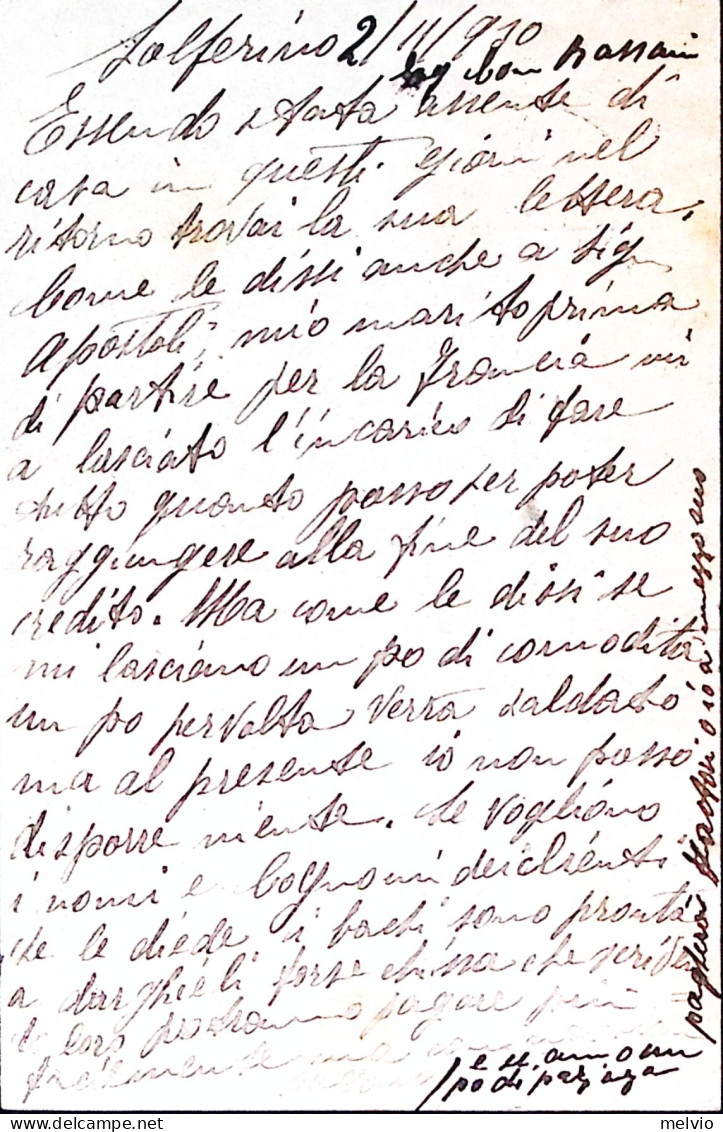 Solferino 2/11/930
Rag Com Bassani
Essendo stata assente di
casa in questi giorni nel
ritorno trovai la sua lettera,
Come le dissi anche a Sig
Apostoli, mio marito prima
di partire per la Francia mi
a lasciato l'incarico di fare
tutto quanto posso per poter
raggiungere alla fine del suo
credito. Ma come le dissi se
mi lasciano un po di comodità
un po per volta verrà saldato
ma al presente io non posso
disporre niente. Se vogliono
i nomi e Cognomi dei clienti
che le diede i bachi sono pronta
a darghieli forse chissa che
a loro potranno pagare più
facilmente ma
e si anno un
po di pazienza
pagherò io a mezzo suo
melvio